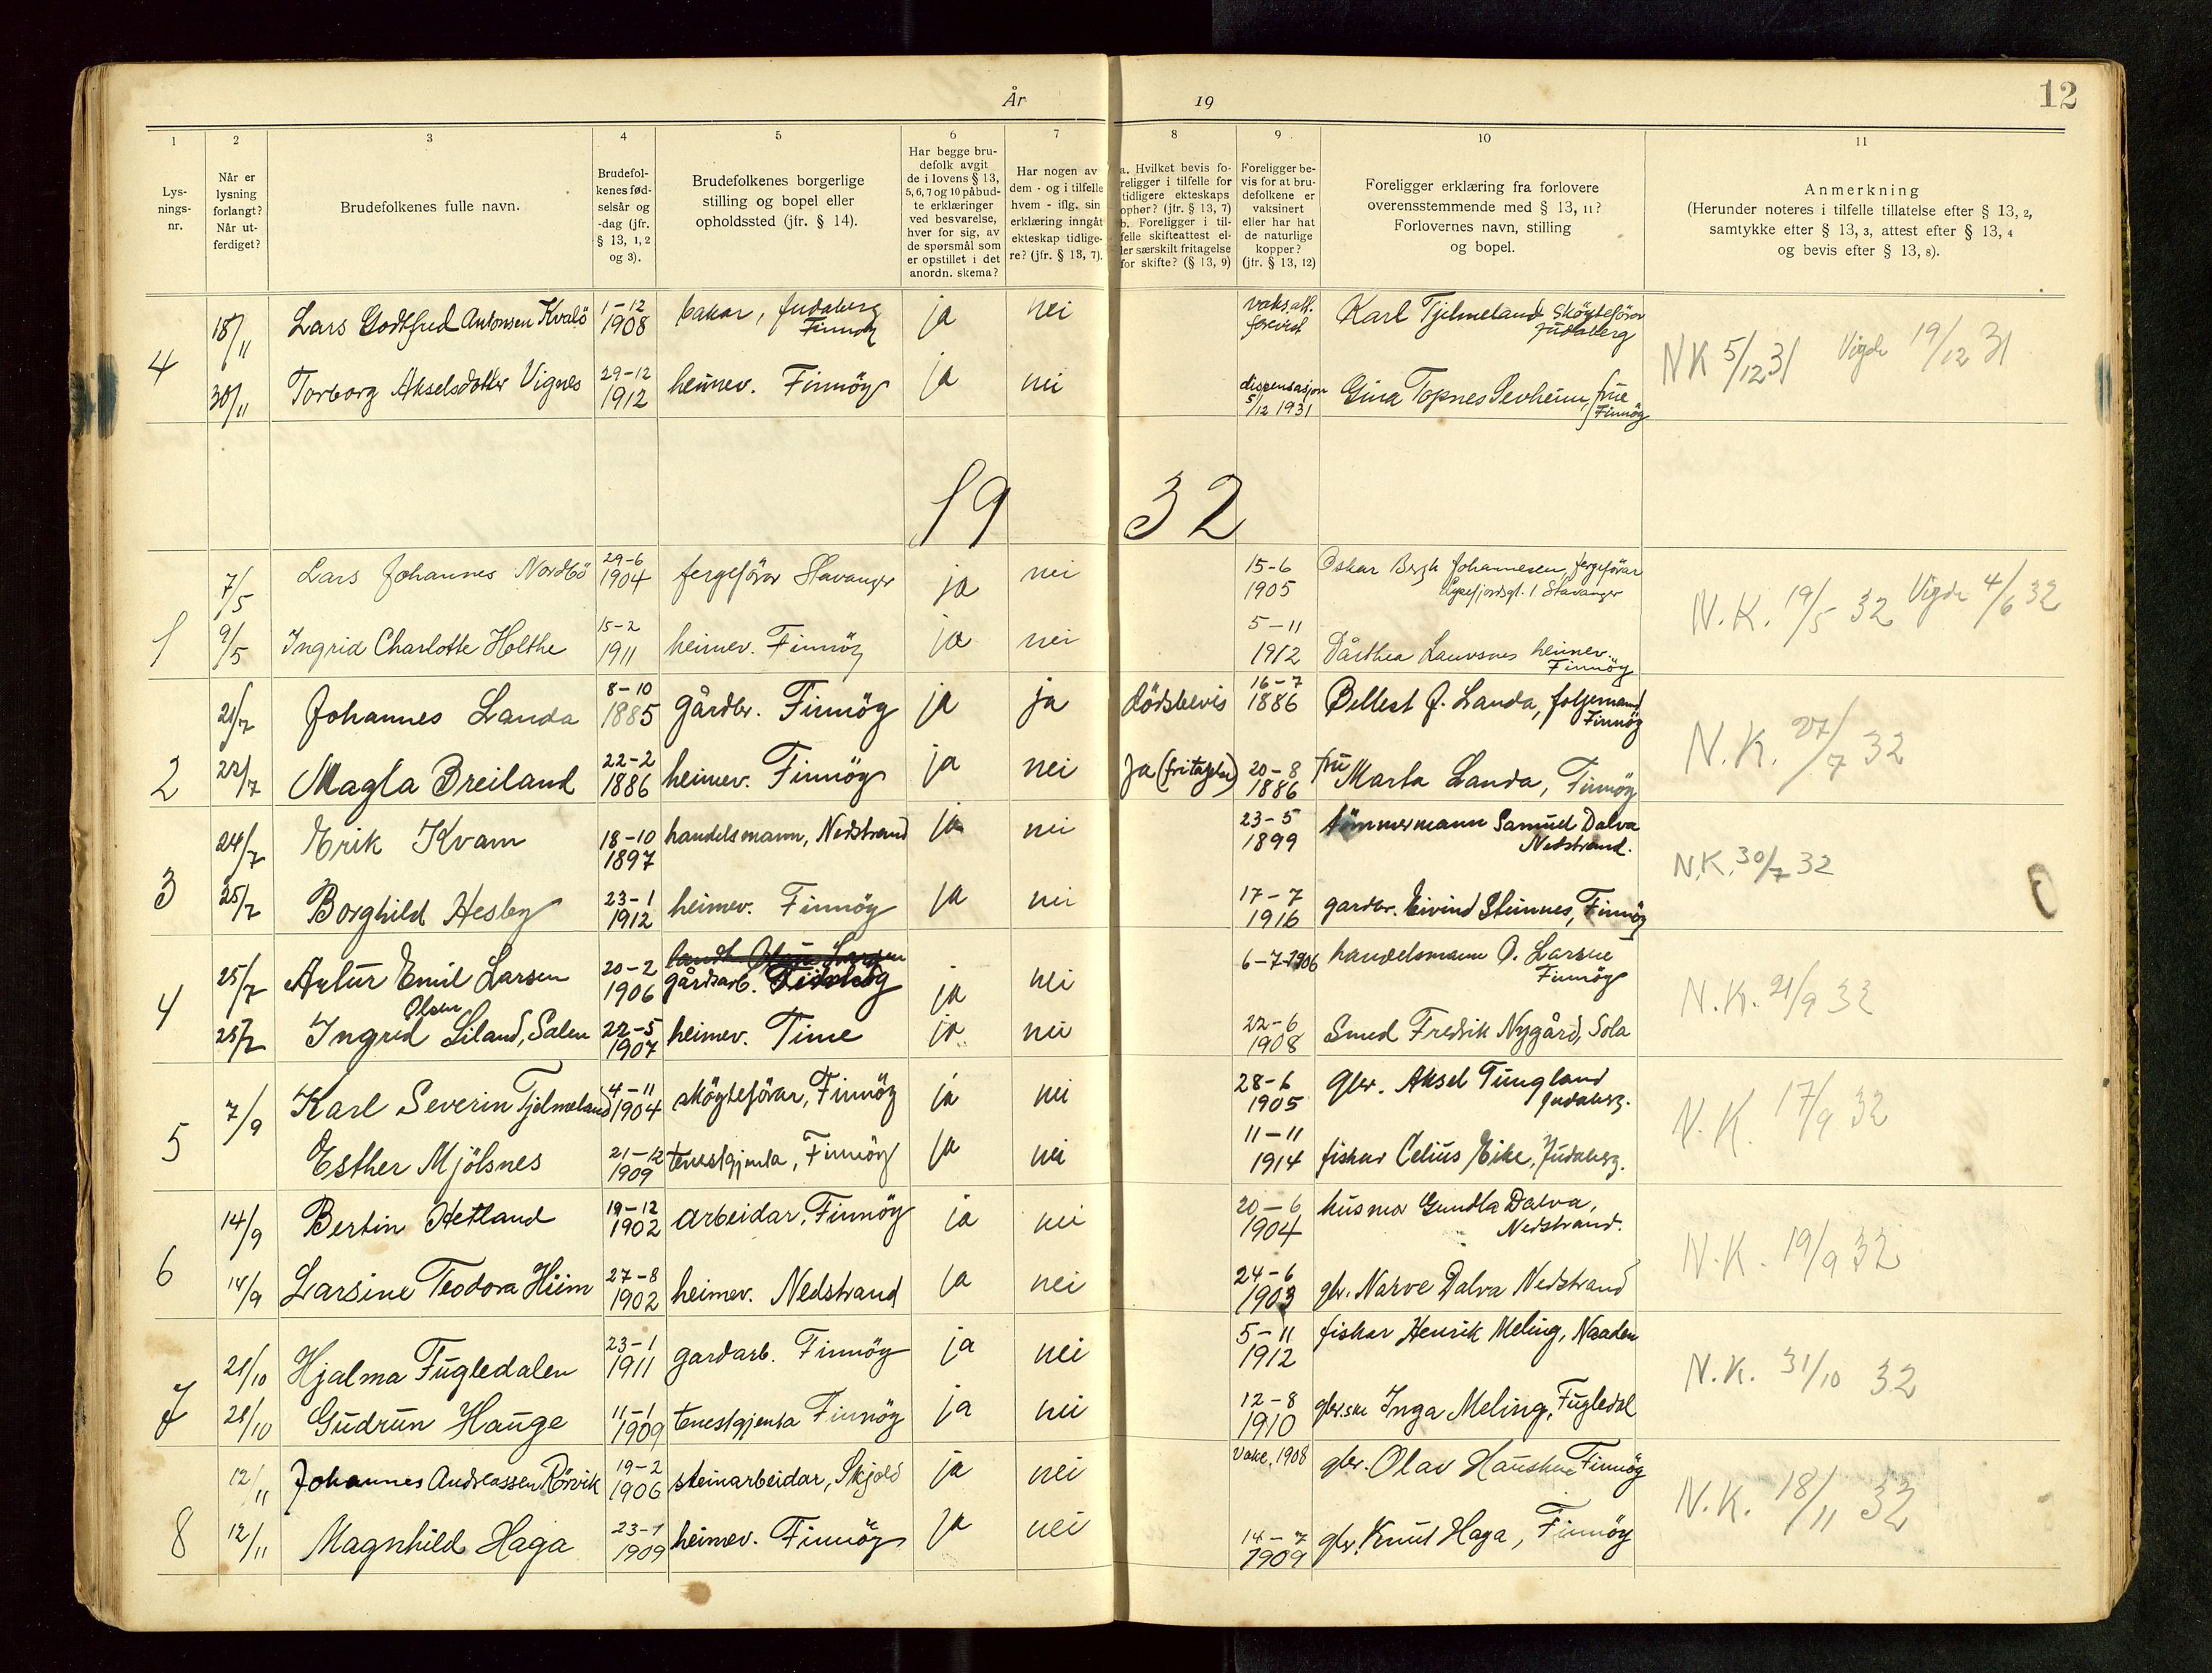 År 19
12
1
2
3
4
5
6
7
8
9
10
11
Lys-
nings-
nr.
Når er
lysning
forlangt?
Når ut-
ferdiget?
Brudefolkenes fulle navn.
Brudefol-
kenes fød-
selsår og
-dag (jfr.
§ 13, 1, 2
og 3).
Brudefolkenes borgerlige
stilling og bopel eller
opholdssted (jfr. § 14).
Har begge bru-
defolk avgit
de i lovens § 13,
5, 6, 7 og 10 påbud-
te erklæringer
ved besvarelse,
hver for sig, av
de spørsmål som
er opstillet i det
anordn. skema?
Har nogen av
dem - og i tilfelle
hvem - iflg. sin
erklæring inngåt
ekteskap tidlige-
re? (jfr. § 13, 7).
a. Hvilket bevis fo-
religger i tilfelle for
tidligere ekteskaps
ophør? (jfr. § 13, 7)
b. Foreligger i til-
felle skifteattest el-
ler særskilt fritagelse
for skifte? (§ 13, 9)
Foreligger be-
vis for at bru-
defolkene er
vaksinert
eller har hat
de naturlige
kopper?
(jfr. § 13, 12)
Foreligger erklæring fra forlovere
overensstemmende med § 13, 11?
Forlovernes navn, stilling
og bopel.
Anmerkning
(Herunder noteres i tilfelle tillatelse efter § 13, 2,
samtykke efter § 13, 3, attest efter § 13, 4
og bevis efter § 13, 8).
4
18/11 Lars Godtfred Antonsen Kvalö 1-12 1908 bakar, Judaberg Finnöy ja nei vaks.att. Karl Tjelmeland Sköyteförar Judaberg
30/11 Torborg Akselsdotter Vignes 29-12 1912 heimev. Finnöy ja nei dispensasjon 5/12 1931 Gina Topnes Sevheim, frue Finnöy
NK 5/12 31 Vigde 19/12 31
1932
1
7/5 Lars Johannes Nordbö 29-6 1904 fergeförar Stavanger ja nei 15-6 1905 Oskar Bergh Johannesen, fergeförar Lysefjordsgt. 1 Stavanger
9/5 Ingrid Charlotte Holthe 15-2 1911 heimev. Finnöy ja nei 5-11 1912 Dårthea Lauvsnes heimev. Finnöy
N.K. 19/5 32 Vigde 4/6 32
2
21/7 Johannes Landa 8-10 1885 gårdbr. Finnöy ja ja dödsbevis 16-7 1886 Bellest J. Landa, folgemand Finnöy
22/7 Magla Breiland 22-2 1886 heimev. Finnöy ja nei Ja (fritagelse) 20-8 1886 fru Marta Landa, Finnöy
N.K. 27/7 32
3
24/7 Erik Kvam 18-10 1897 handelsmann, Nedstrand ja nei 23-5 1899 tömmermann Samuel Dalva Nedstrand.
25/7 Borghild Hesby 23-1 1912 heimev. Finnöy ja nei 17-7 1916 gardbr. Eivind Steinnes, Finnöy
N.K. 30/7 32
4
25/7 Artur Emil Larsen 20-2 1906 gårdsarb. ja nei 6-7-1906 handelsmann O. Larsne Finnöy
25/7 Ingrid Olsen Liland, Salen 22-5 1907 heimev. Time ja nei 22-6 1908 Smed Fredrik Nygård, Sola
N.K. 21/9 32
5
7/9 Karl Severin Tjelmeland 4-11 1904 sköyteförar, Finnöy ja nei 28-6 1905 gbr. Aksel Tungland Judaberg.
Esther Mjölsnes 21-12 1909 tenestgjenta, Finnöy ja nei 11-11 1914 fiskar Celius Eike, Judaberg.
N.K. 17/9 32
6
14/9 Bertin Hetland 19-12 1902 arbeidar, Finnöy ja nei 20-6 1904 husmor Gundla Dalva, Nedstrand.
14/9 Larsine Teodora Hiim 27-8 1902 heimev. Nedstrand ja nei 24-6 1903 gbr. Narve Dalva Nedstrand
N.K. 19/9 32
7
21/10 Hjalma Fugledalen 23-1 1911 gardarb. Finnöy ja nei 5-11 1912 fiskar Henrik Meling, Naaden
21/10 Gudrun Hauge 11-1 1909 tenestgjenta Finnöy ja nei 12-8 1910 gbr.ske Inga Meling, Fugledal
N.K. 31/10 32
8
12/11 Johannes Andreassen Rörvik 19-2 1906 steinarbeidar, Skjold ja nei Vaks. 1908 gbr. Olav Hausken Finnöy
12/11 Magnhild Haga 23-1 1909 heimev. Finnöy ja nei 14-7 1909 gbr. Knut Haga, Finnöy
N.K. 18/11 32